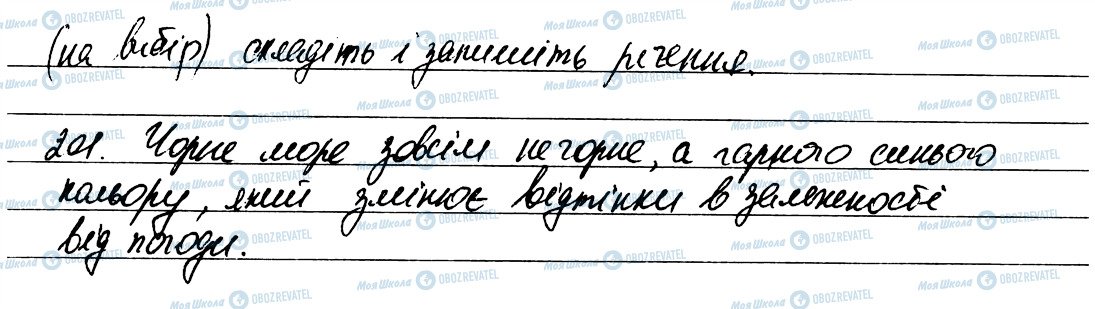 (на вибір) складіть і запишіть речення.
201. Чорне море зовсім не чорне, а гарного синього
кольору, який змінює відтінки в залежності
від погоди.